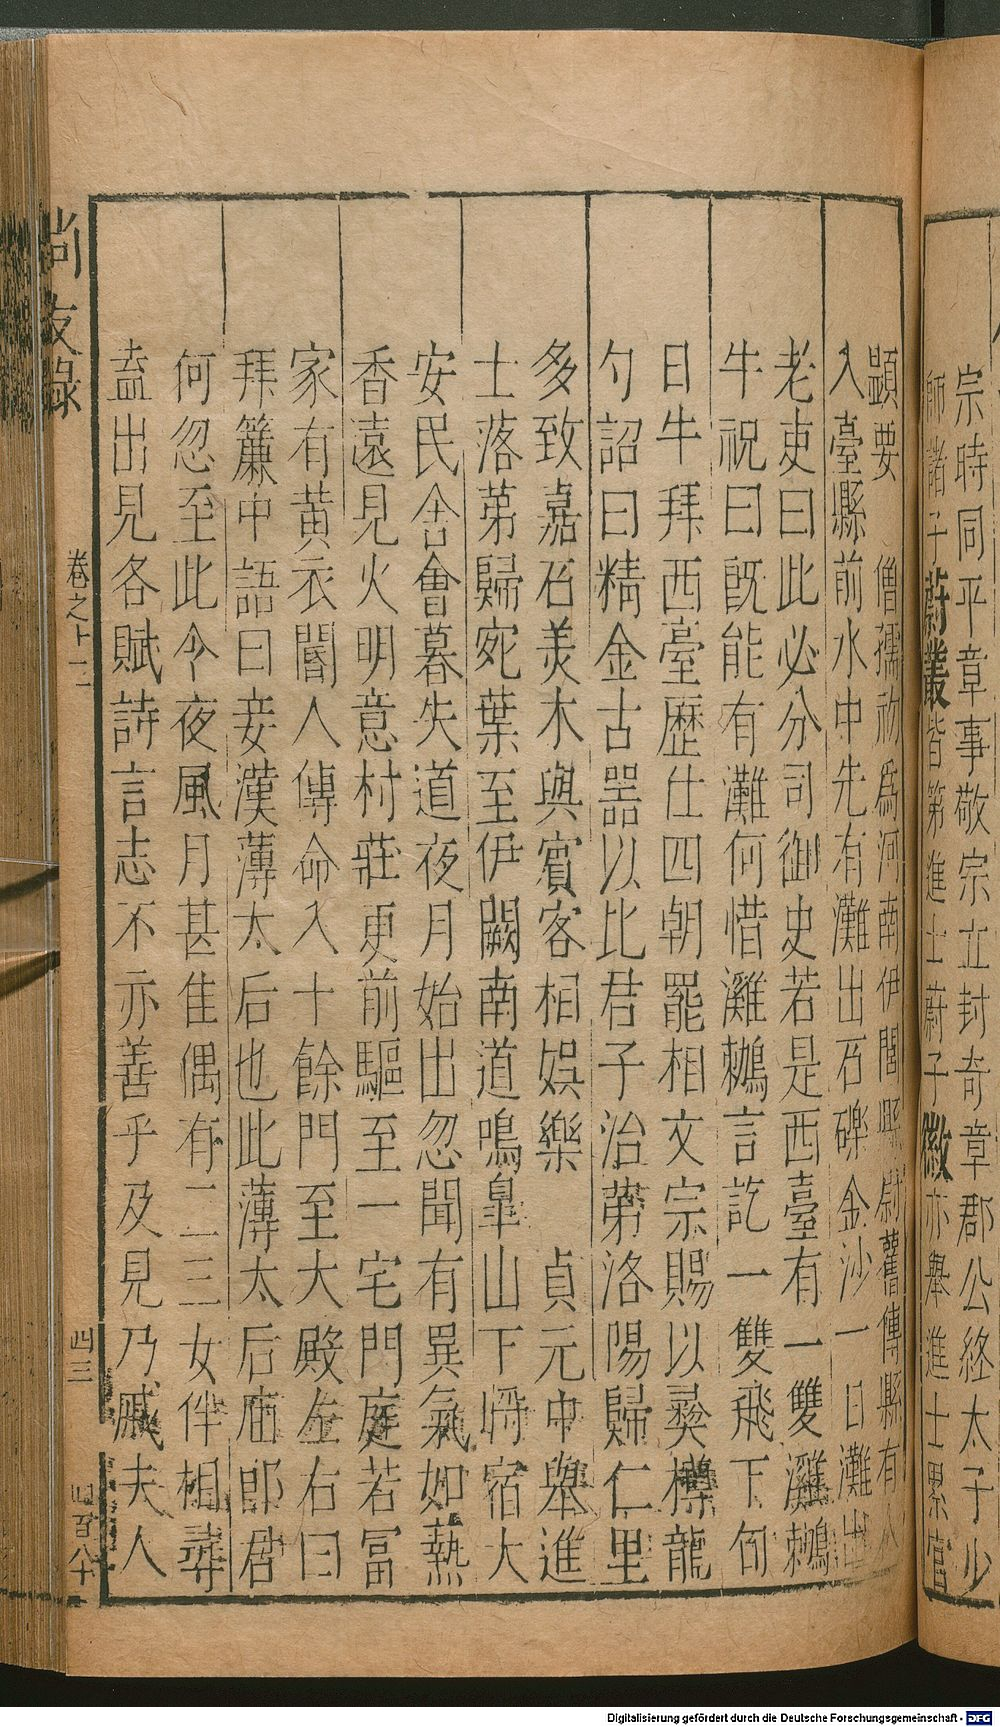 宗時同平章事敬宗立封奇章郡公終太子少
師諸子蔚叢皆第進士蔚子徽亦舉進士累官
顯要　僧孺初為河南伊闕縣尉舊傳縣有
入臺縣前水中先有灘出石礫金沙一日灘出
老吏曰此必分司御史若是西臺有一雙㶉鶒
牛祝曰旣能有灘何惜㶉鶒言訖一雙飛下旬
日牛拜西臺歷仕四朝罷相文宗賜以彝樽龍
勺詔曰精金古器以比君子治第洛陽歸仁里
多致嘉石美木與賓客相娛樂　貞元中舉進
士落第歸宛葉至伊闕南道鳴皐山下將宿大
安民舍會暮失道夜月始出忽聞有異氣如熱
香遠見火明意村莊更前驅至一宅門庭若冨
家有黃衣閽人傳命入十餘門至大殿左右曰
拜簾中語曰妾漢薄太后也此薄太后庙郎君
何忽至此今夜風月甚佳偶有二三女伴相尋
盍出見各賦詩言志不亦善乎及見乃戚夫人
尚友錄
卷之十二
四三
四百八十
Digitalisierung gefördert durch die Deutsche Forschungsgemeinschaft - DFG